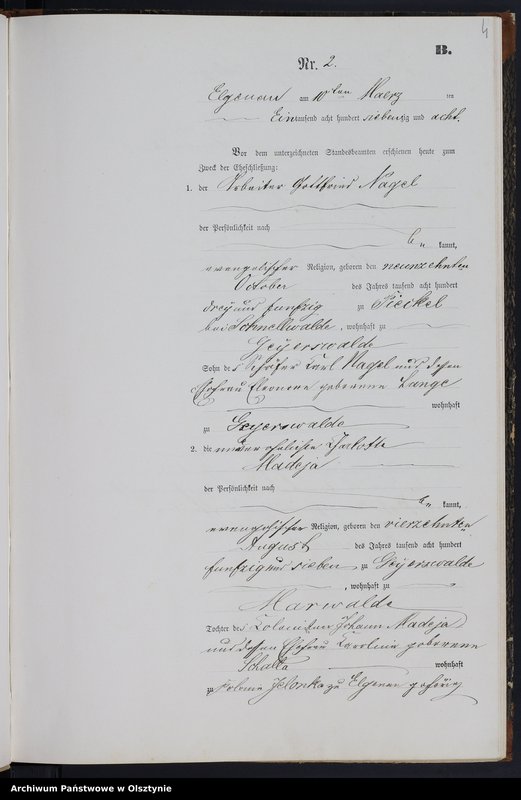 4
B.
Nr. 2.
Elgenau am 10ten Maerz ten
Eintausend acht hundert siebenzig und acht.
Vor dem unterzeichneten Standesbeamten erschienen heute zum
Zweck der Eheschließung:
1. der Arbeiter Gottfried Nagel
der Persönlichkeit nach
be kannt,
evangelischer Religion, geboren den neunzehnten
October des Jahres tausend acht hundert
drei und funfzig zu
bei Schnellwalde, wohnhaft zu
Geyerswalde
Sohn des Schäfer Karl Nagel und dessen
Ehefrau Eleonore geborene Lange
wohnhaft
zu Geyerswalde
2. die unverehelichte Charlotte
Madeja
der Persönlichkeit nach
be kannt,
evangelischer Religion, geboren den vierzehnten
August des Jahres tausend acht hundert
funfzig und sieben zu Geyerswalde
, wohnhaft zu
Marwalde
Tochter des Kolonisten Johann Madeja
und dessen Ehefrau Karoline geborene
Schatta wohnhaft
zu Kolonie Jelonka zu Elgenau gehörig
Archiwum Państwowe w Olsztynie